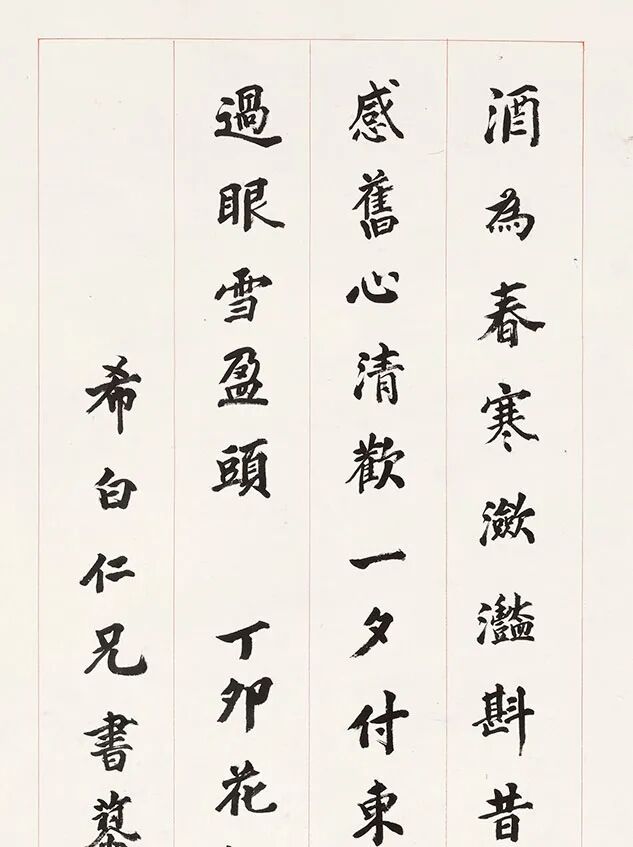 酒為春寒瀲灩斟昔
感舊心清歡一夕付東
過眼雪盈頭 丁卯花
希白仁兄書